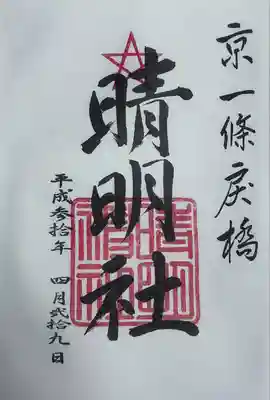 京一條戻橋
晴明社
晴明神社
平成参拾年 四月弐拾九日